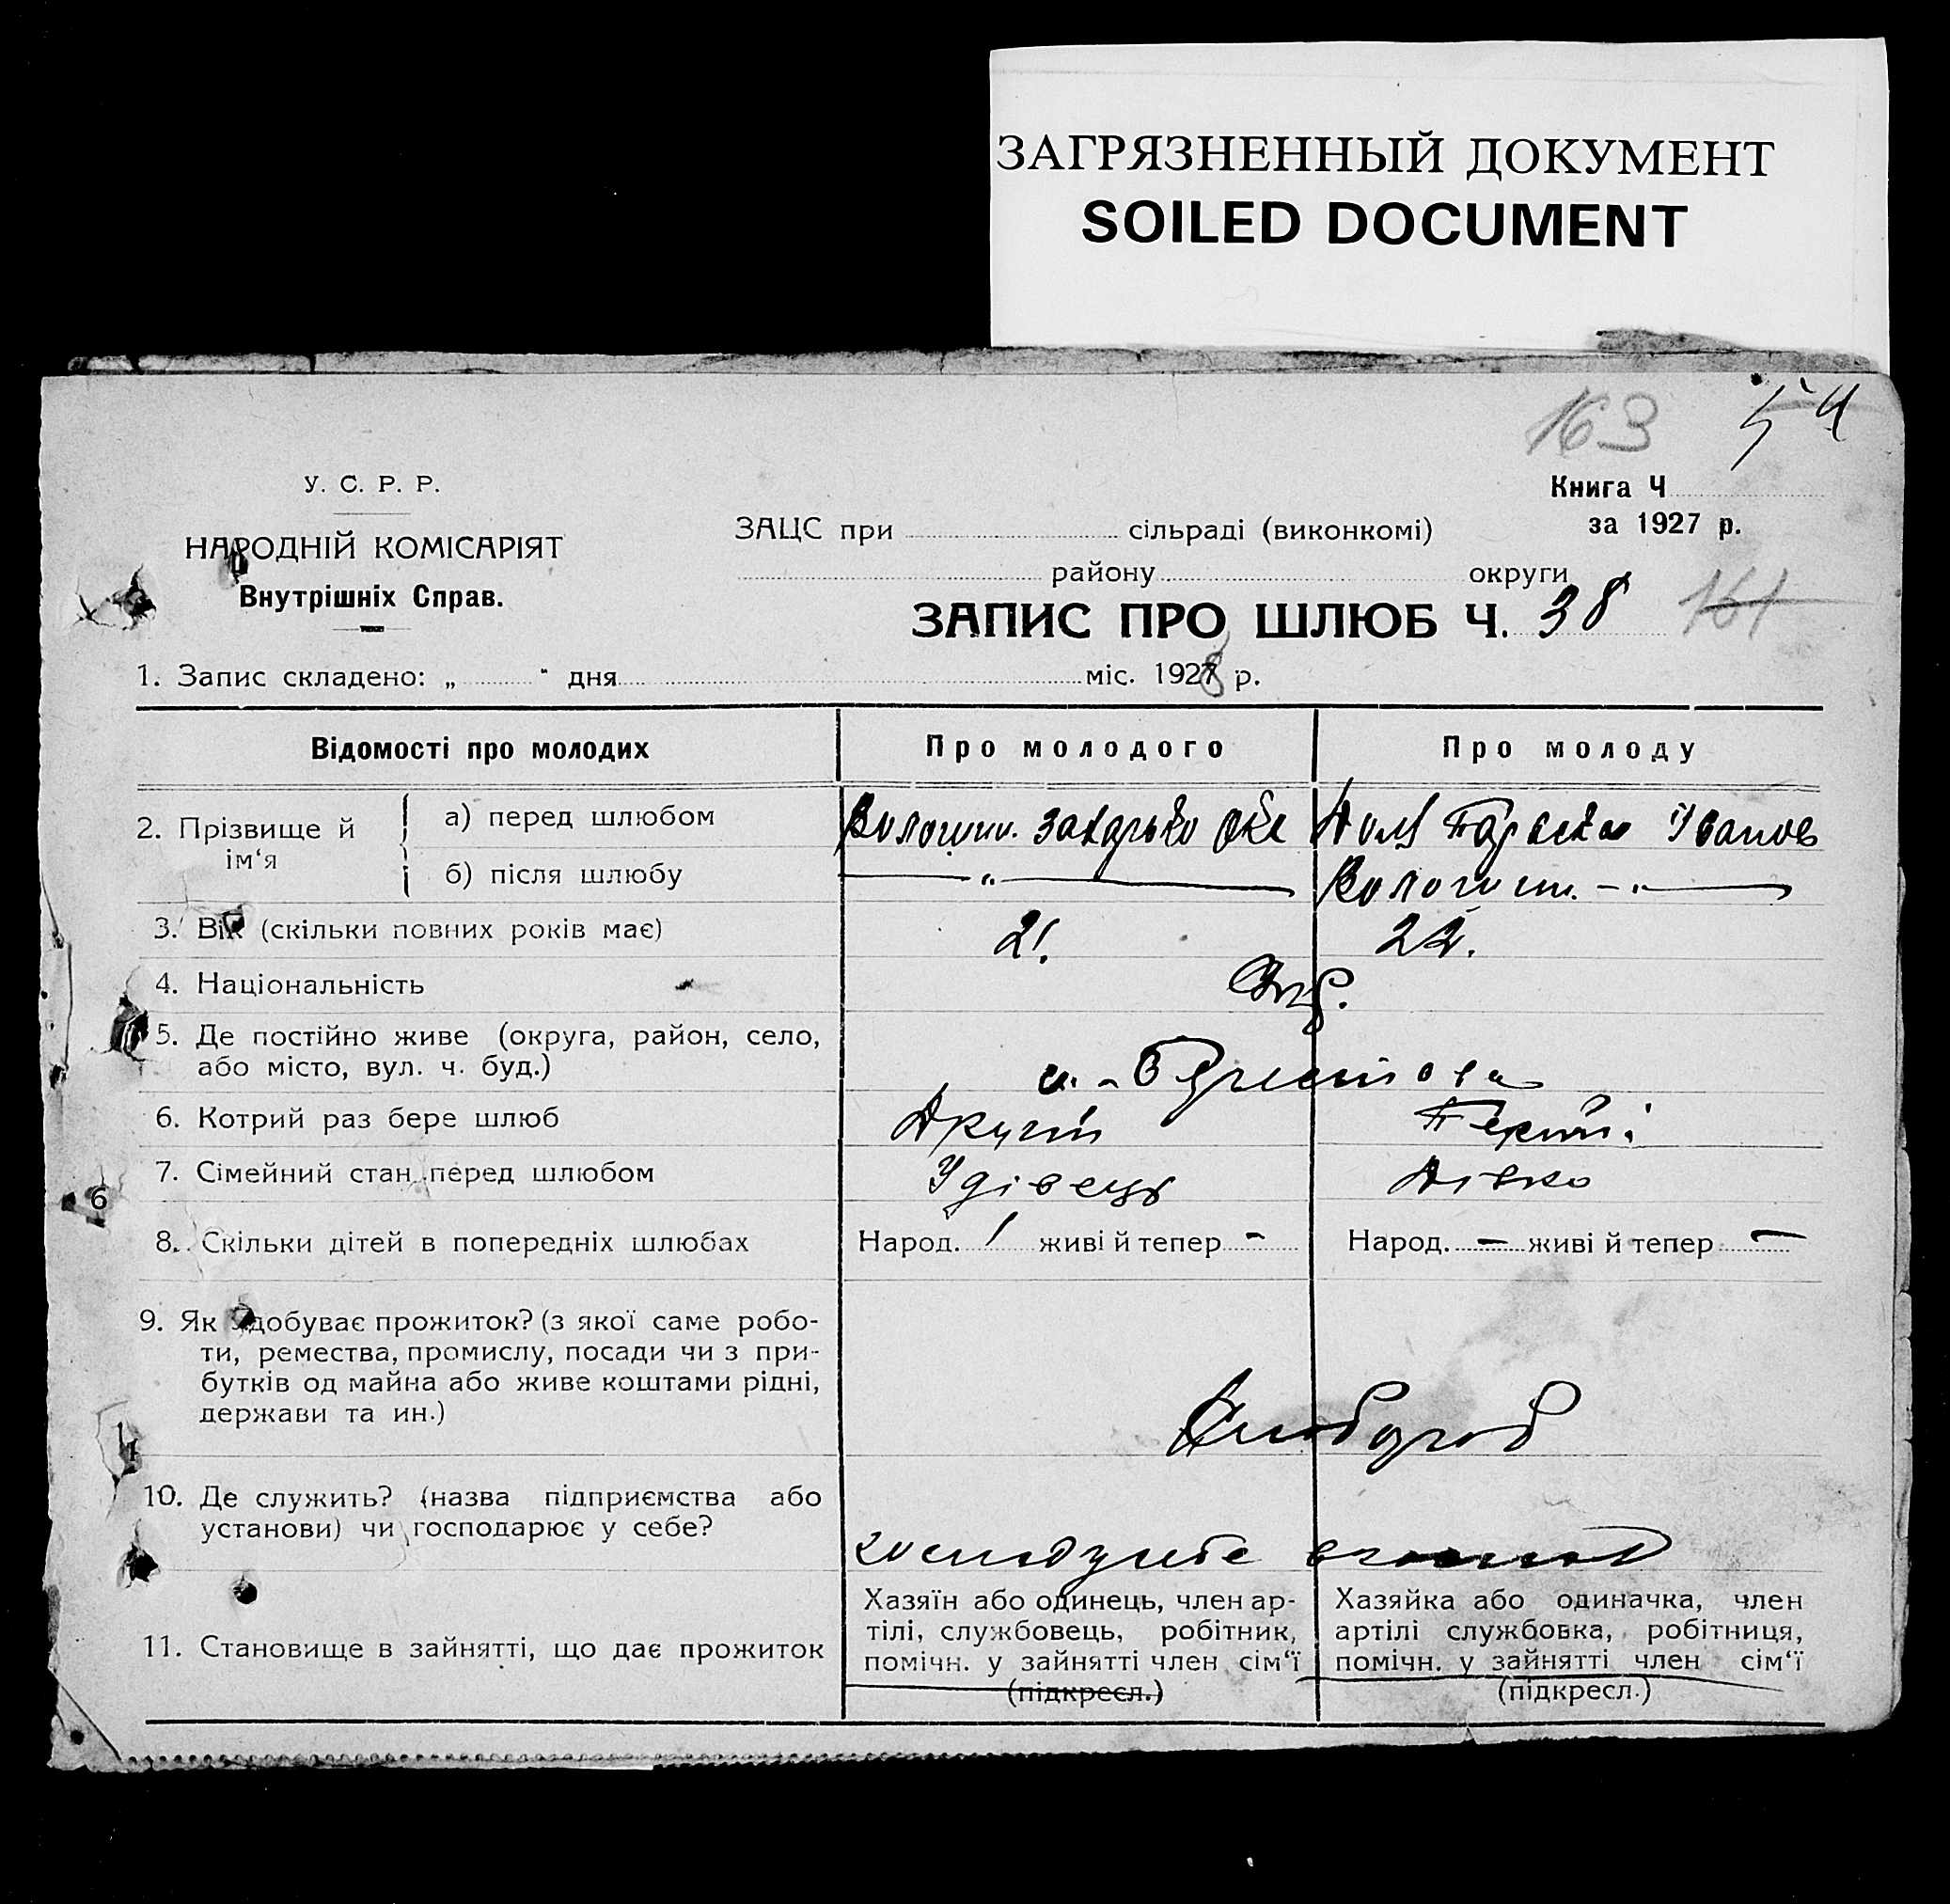 ЗАГРЯЗНЕННЫЙ ДОКУМЕНТ
SOILED DOCUMENT
163
У. С. Р. Р.
НАРОДНІЙ КОМІСАРІЯТ
Внутрішніх Справ.
Книга Ч
за 1927 р.
ЗАЦС при сільраді (виконкомі)
району округи
ЗАПИС ПРО ШЛЮБ Ч. 38 161
1. Запис складено: „ " дня міс. 1928 р.
Відомості про молодих Про молодого Про молоду
2. Прізвище й ім‘я
а) перед шлюбом Волошин. Захарько Іванов
б) після шлюбу — „ — Волошин. — „ —
3. Вік (скільки повних років має) 21. 22.
4. Національність Укр.
5. Де постійно живе (округа, район, село,
або місто, вул. ч. буд.)
6. Котрий раз бере шлюб Другий Перший
7. Сімейний стан перед шлюбом Удівець Дівка
8. Скільки дітей в попередніх шлюбах Народ. 1 живі й тепер - Народ. - живі й тепер -
9. Як здобуває прожиток? (з якої саме робо-
ти, ремества, промислу, посади чи з при-
бутків од майна або живе коштами рідні,
держави та ин.)
Хлібороб
10. Де служить? (назва підприємства або
установи) чи господарює у себе?
11. Становище в зайнятті, що дає прожиток
Хазяїн або одинець, член ар-
тілі, службовець, робітник,
помічн. у зайнятті член сім‘ї
(підкресл.)
Хазяйка або одиначка, член
артілі службовка, робітниця,
помічн. у зайнятті член сім‘ї
(підкресл.)
6